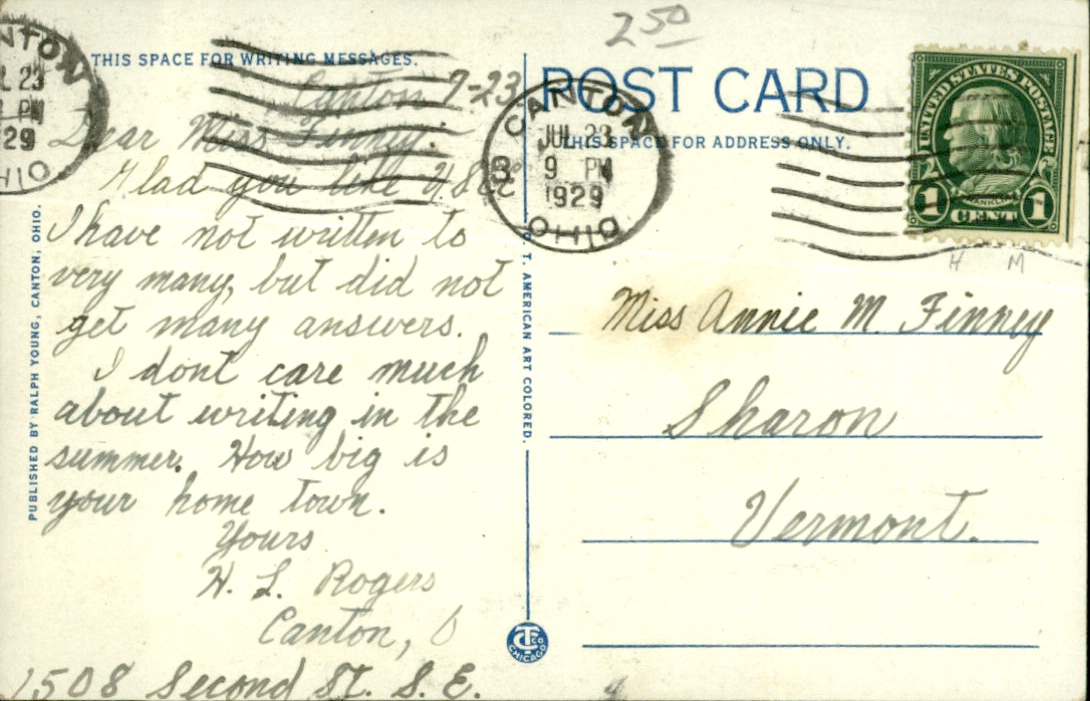 THIS SPACE FOR WRITING MESSAGES.
Canton 7-23
Dear Miss Finney:
Glad you like
I have not written to
very many, but did not
get many answers.
I dont care much
about writing in the
summer. How big is
your home town.
Yours
H. L. Rogers
Canton, O
1508 Second St. S. E.
PUBLISHED BY RALPH YOUNG, CANTON, OHIO.
C. T. AMERICAN ART COLORED.
NTON
L 23
PM
29
HIO
CANTON
JUL 23
9 PM
1929
OHIO
250
POST CARD
THIS SPACE FOR ADDRESS ONLY.
UNITED STATES POSTAGE
FRANKLIN
1 CENT 1
H M
Miss Annie M. Finney
Sharon
Vermont.
CT CO
CHICAGO